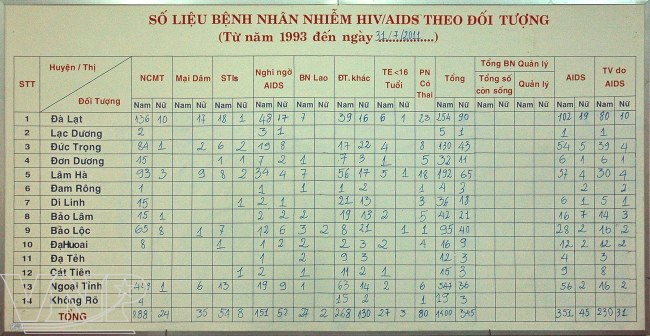 SỐ LIỆU BỆNH NHÂN NHIỄM HIV/AIDS THEO ĐỐI TƯỢNG
(Từ năm 1993 đến ngày 31/7/2011)
STT Huyện / Thị Đối Tượng NCMT Mại Dâm STIs Nghi ngờ AIDS BN Lao ĐT. khác TE <16 Tuổi PN Có Thai Tổng Tổng BN Quản lý Tổng số còn sống Quản lý AIDS TV do AIDS
Nam Nữ Nam Nữ Nam Nữ Nam Nữ Nam Nữ Nam Nữ Nam Nữ Nam Nữ Nam Nữ Nam Nữ Nam Nữ
1 Đà Lạt 136 10 17 18 1 48 17 7 39 16 6 1 23 254 90 102 19 80 10
2 Lạc Dương 2 3 1 5 1 1 1
3 Đức Trọng 84 1 2 6 2 19 8 17 22 4 8 130 43 54 5 39 4
4 Đơn Dương 15 1 1 7 2 1 7 3 1 5 32 11 6 1 6 1
5 Lâm Hà 93 3 9 8 2 34 4 7 56 17 5 1 18 192 65 37 4 30 4
6 Đam Rông 1 1 1 1 2 1 4 3 2 2
7 Di Linh 15 1 2 1 21 13 3 36 18 6 1 5 1
8 Bảo Lâm 15 1 2 2 2 19 13 2 5 42 21 16 7 14 3
9 Bảo Lộc 65 8 1 7 12 6 3 2 8 1 1 95 40 28 2 16 2
10 Đạ Huoai 8 1 1 2 2 2 3 2 4 16 9 12 2 12 2
11 Đạ Tẻh 2 1 9 3 12 3 4 3
12 Cát Tiên 1 2 1 11 2 1 15 3 9 8
13 Ngoại Tỉnh 449 1 6 13 19 9 1 63 14 2 6 547 36 56 2 16 2
14 Không Rõ 4 15 2 1 19 3
TỔNG 888 24 35 151 52 27 2 268 130 27 3 80 1400 345 351 45 230 31